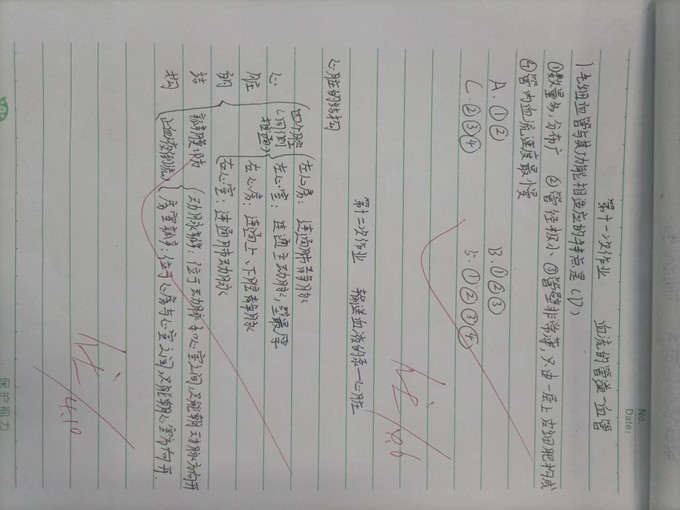 No.
Date:
第十一次作业 血流的管道—血管
1.毛细血管与其功能相适应的特点是(D)
①数量多,分布广 ②管径极小 ③管壁非常薄,只由一层上皮细胞构成
④管内血流速度最慢
A.①② B.①②③
C.②③④ D.①②③④
4.6
第十二次作业 输送血液的泵—心脏
心脏的结构
心脏的结构
四个腔
左心房:连通肺静脉
左心室:连通主动脉,壁最厚
右心房:连通上、下腔静脉
右心室:连通肺动脉
瓣膜:防止血液倒流
动脉瓣:位于动脉和心室之间,只能朝动脉方向开
房室瓣:位于心房与心室之间,只能朝心室方向开.
4.10
保护视力